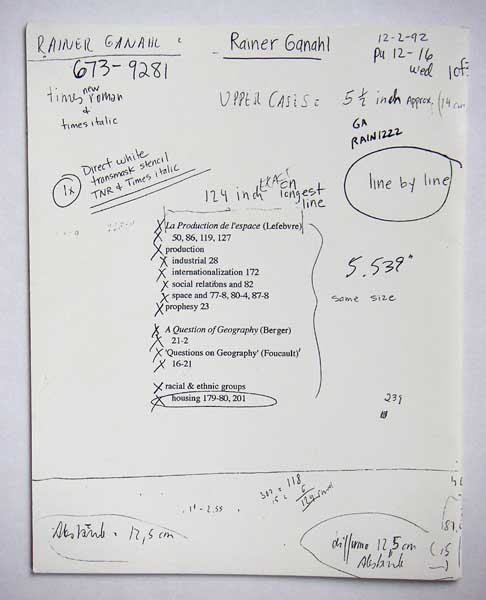 RAINER GANAHL :
Rainer Ganahl
12-2-92
PU 12-16
wed
1 of
673-9281
times new roman
&
times italic
UPPER CASE:
5 ½ inch Approx. (14 cm
GA
RAIN1222
Direct white
transmask stencil
TNR & Times italic
1x
line by line
124 inch EXACT on longest
line
La Production de l'espace (Lefebvre)
50, 86, 119, 127
production
industrial 28
internationalization 172
social relations and 82
space and 77-8, 80-4, 87-8
prophesy 23
A Question of Geography (Berger)
21-2
'Questions on Geography' (Foucault)
16-21
racial & ethnic groups
housing 179-80, 201
5.539"
same size
239
118
1" - 2.55
12,5 cm
12,5 cm
(15